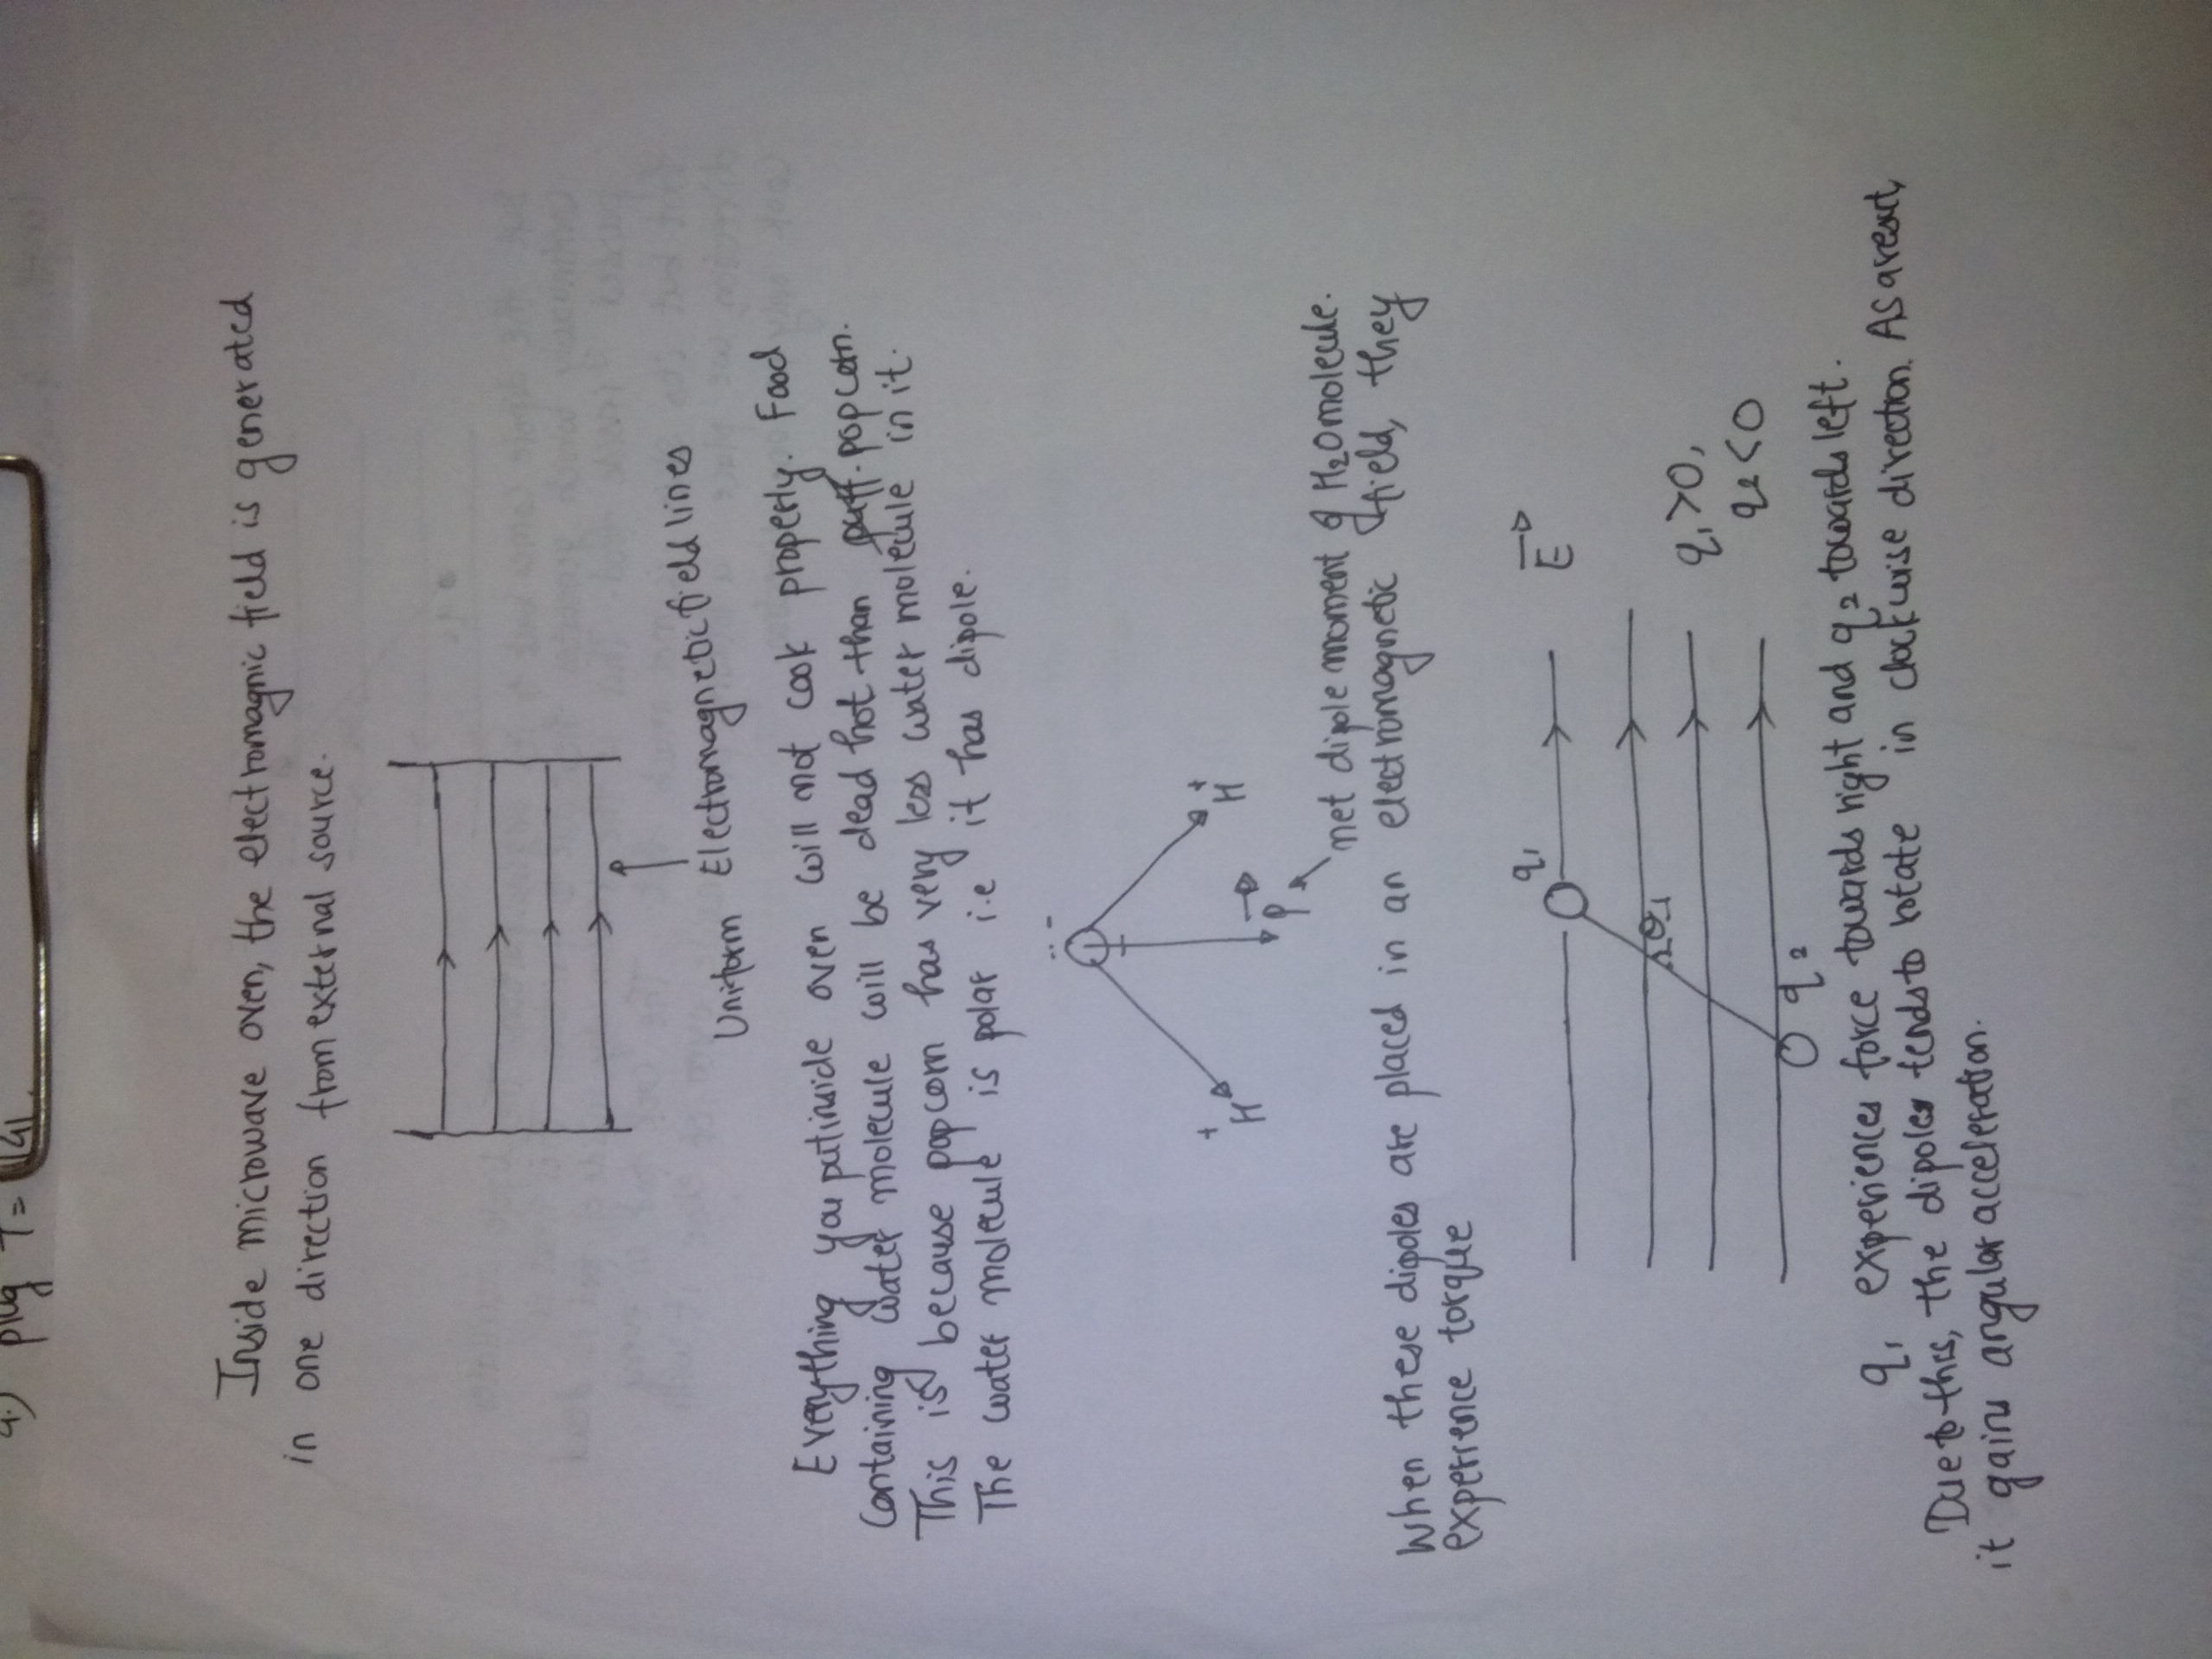 4.) plug T = 141
Inside microwave oven, the electromagnic field is generated
in one direction from external source.
Uniform Electromagnetic field lines
Everything you putinside oven will not cook properly. Food
containing water molecule will be dead hot than popcorn.
This is because popcorn has very less water molecule in it.
The water molecule is polar i.e it has dipole.
-
+H
H+
P
net dipole moment of H₂O molecule.
When these dipoles are placed in an electromagnetic field, they
experience torque
q₁
E
θ
q₁>0,
q₂<0
q₂
q₁ experiences force towards right and q₂ towards left.
Due to this, the dipoles tends to rotate in clockwise direction. As aresut,
it gains angular acceleration.